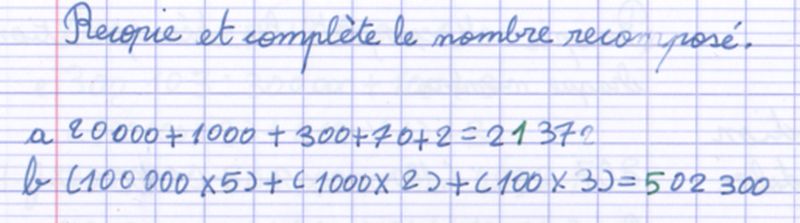 Recopie et complète le nombre recomposé.
a 20000+1000+300+70+2=21372
b (100 000 x5)+(1000x 2)+(100 x 3)=502 300